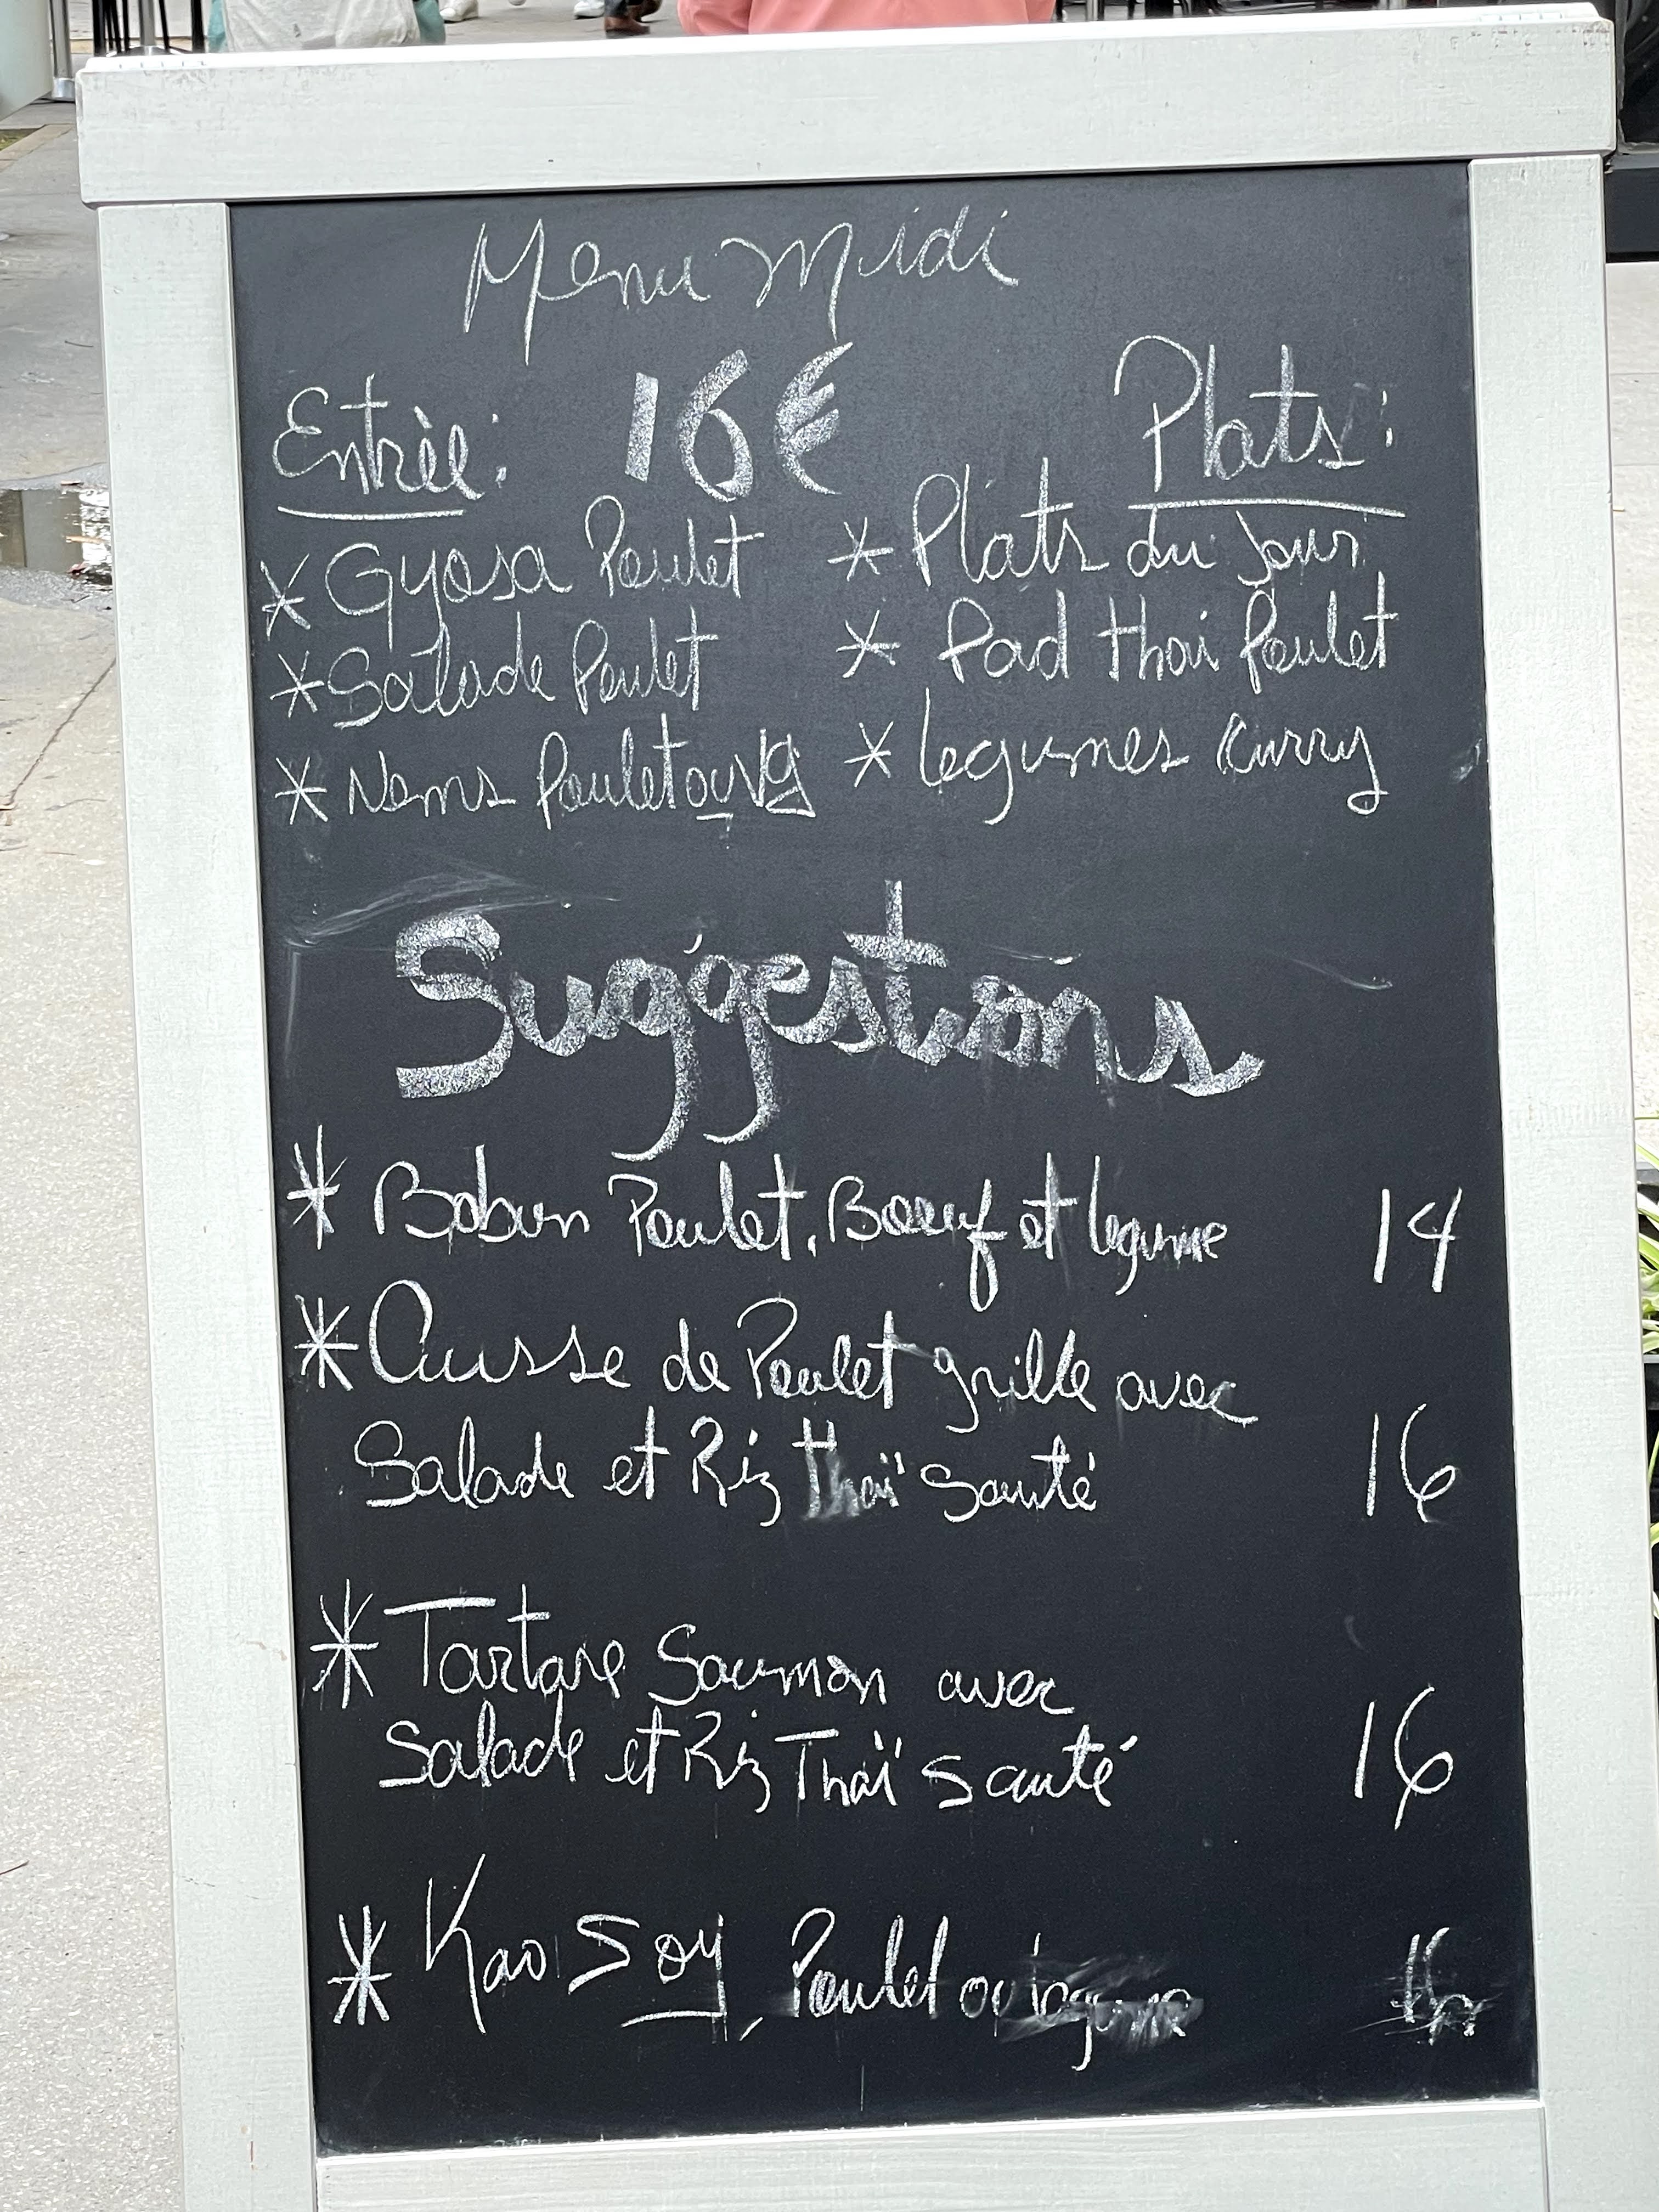 Menu Midi
16€
Entrèe:
* Gyosa Poulet
* Salade Poulet
* Nems Poulet ou Vg
Plats:
* Plats du Jour
* Pad thai Poulet
* legumes Curry
Suggestions
* Bobun Poulet, Boeuf et legume 14
* Cuisse de Poulet grille avec
Salade et Riz thaï Sauté 16
* Tartare Saumon avec
Salade et Riz Thaï Sauté 16
* Kao Soy, Poulet ou legume